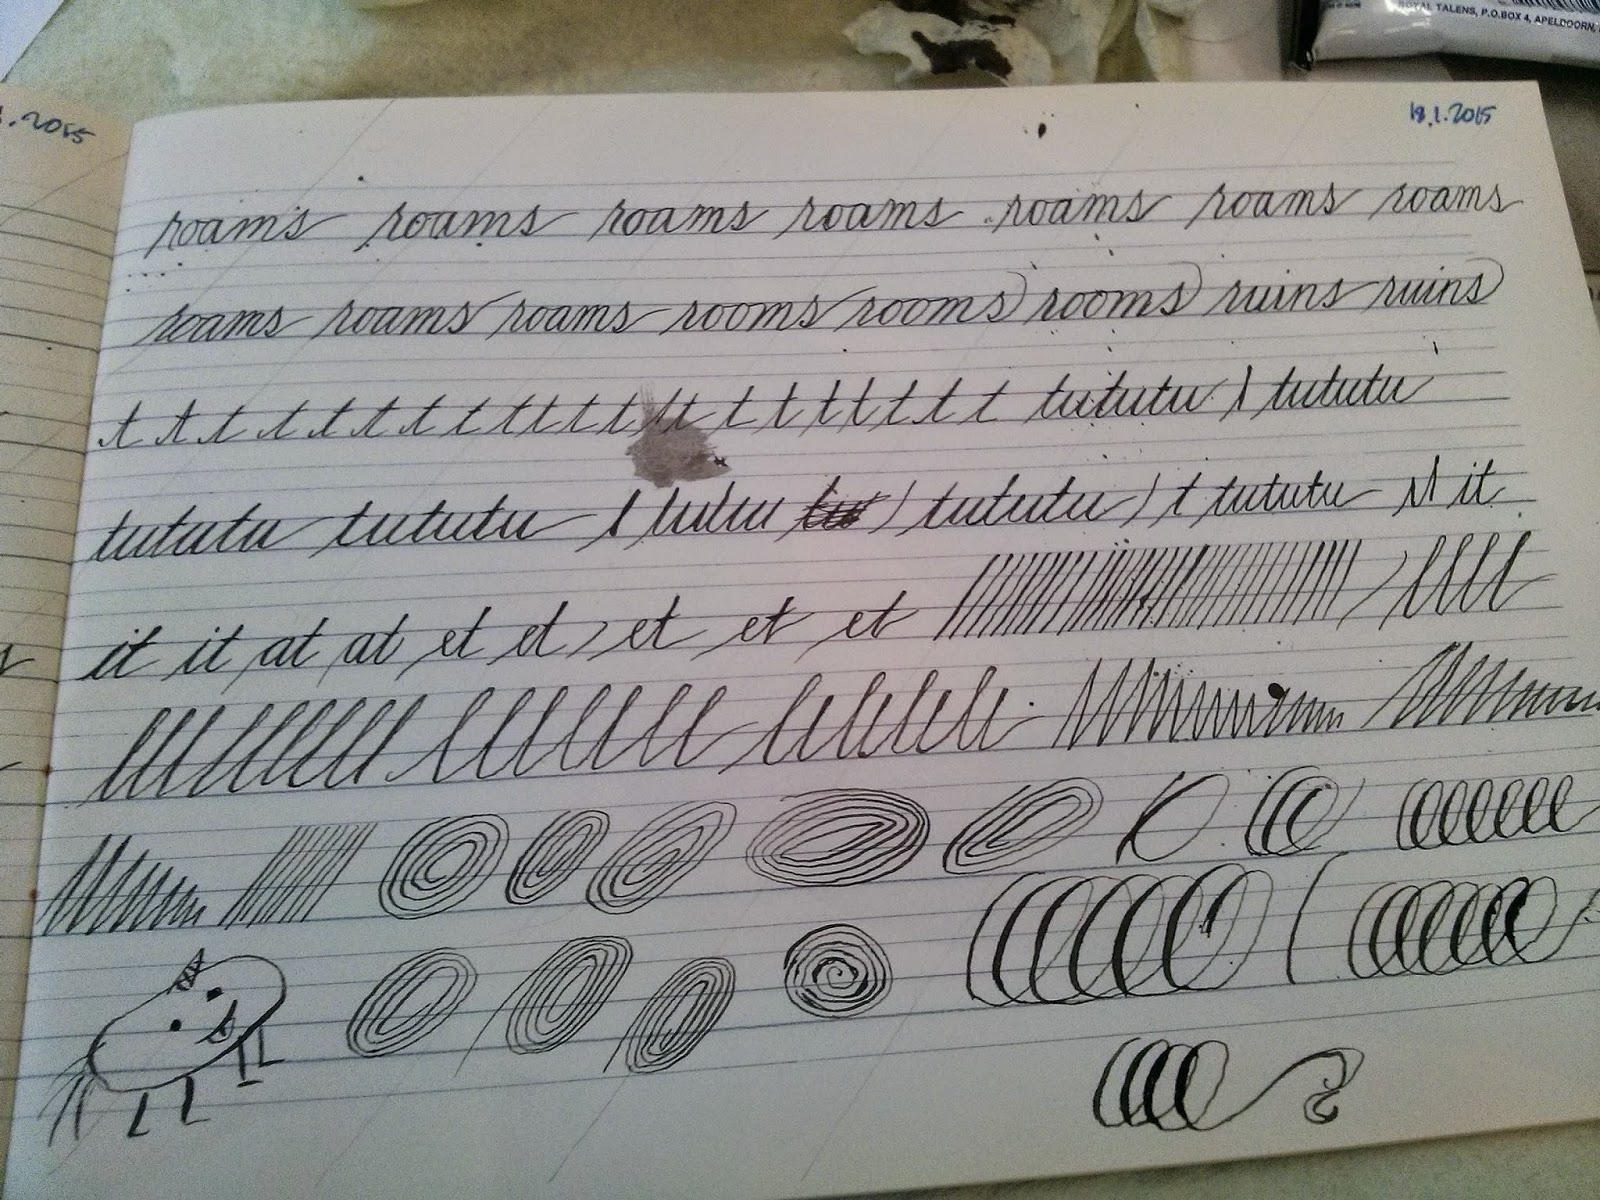 ROYAL TALENS, P.O.BOX 4, APELDOORN,
.2015
18.1.2015
roams roams roams roams roams roams roams
roams roams roams rooms rooms rooms ruins ruins
t t t t t t t t t t t t t t t t t t t t tututu tututu
tututu tututu tututu tu tututu t tututu it
it it at at et et et et et